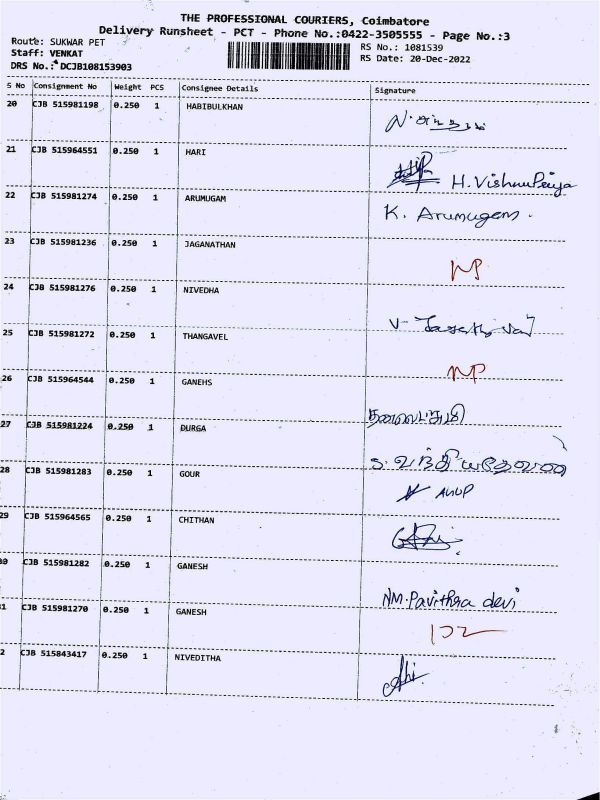 THE PROFESSIONAL COURIERS, Coimbatore
Delivery Runsheet - PCT - Phone No.:0422-3505555 - Page No.:3
Route: SUKWAR PET
Staff: VENKAT
DRS No.: DCJB108153903
RS No.: 1081539
RS Date: 20-Dec-2022
S No Consignment No Weight PCS Consignee Details Signature
20 CJB 515981198 0.250 1 HABIBULKHAN
21 CJB 515964551 0.250 1 HARI H. Vishnu Priya
22 CJB 515981274 0.250 1 ARUMUGAM K. Arumugam.
23 CJB 515981236 0.250 1 JAGANATHAN NP
24 CJB 515981276 0.250 1 NIVEDHA
25 CJB 515981272 0.250 1 THANGAVEL NP
26 CJB 515964544 0.250 1 GANEHS
27 CJB 515981224 0.250 1 DURGA
28 CJB 515981283 0.250 1 GOUR ANUP
29 CJB 515964565 0.250 1 CHITHAN
30 CJB 515981282 0.250 1 GANESH NM. Pavithra devi
1 CJB 515981270 0.250 1 GANESH
2 CJB 515843417 0.250 1 NIVEDITHA